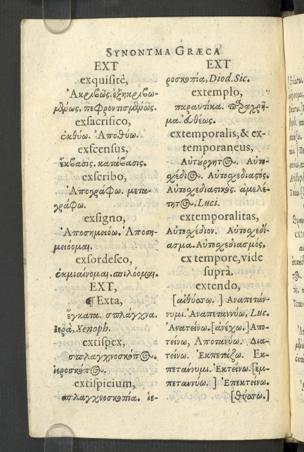 SYNONYMA GRÆCA
EXT
exquisitè,
Ἀκριβῶς. ἐξηκριβω-
μένως, πεφροντισμένως.
exsacrifico,
ἐκθύω. Ἀποθύω.
exscensus,
ἔκβασις. κατάβασις.
exscribo,
Ἀπογράφω. μετα-
γράφω.
exsigno,
Ἀποσημειόω. Ἀποση-
μειόομαι.
exsordesco,
ἐκμιαίνομαι.
EXT,
¶ Exta,
ἔγκατα. σπλάγχνα.
ἱερὰ, Xenoph.
extispex,
σπλαγχνοσκόπος.
ἱεροσκόπος.
extispicium,
σπλαγχνοσκοπία. ἱε-
EXT
ροσκοπία, Diod. Sic.
extemplo,
παραυτίκα. παραχρῆ-
μα. εὐθέως.
extemporalis, & ex-
temporaneus,
Αὐτο-
σχέδιος. Αὐτοσχεδιαστός.
Αὐτοσχεδιαστικός. ἀμελέ-
τητος, Luci.
extemporalitas,
Αὐτοσχέδιον. Αὐτοσχεδί-
ασμα. Αὐτοσχεδιασμός,
ex tempore, vide
suprà.
extendo,
Ἀναπετάν-
νυμι. Ἀναπεταννύω, Luc.
Ἀνατείνω. [ἀνέχω.] Ἀπο-
τείνω, Διa-
τείνω. Ἐκ-
πετάννυμι. Ἐκτείνω.
πεταννύω. ] Ἐπεκτείνω.